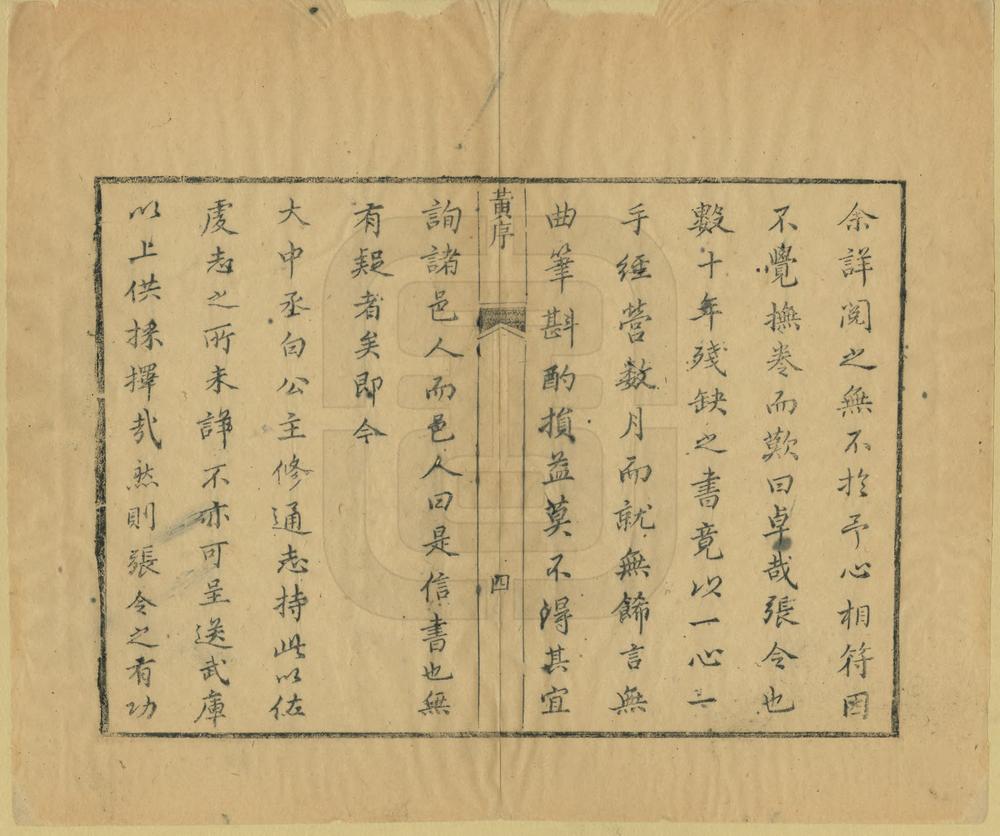 余詳閱之無不於予心相符因
不覺撫卷而歎曰卓哉張令也
數十年殘缺之書竟以一心一
手經營数月而就無餙言無
曲筆斟酌損益莫不得其宜
黃序
四
詢諸邑人而邑人曰是信書也無
有疑者矣即今
大中丞白公主修通志持此以佐
虞志之所未詳不亦可呈送武庫
以上供採擇哉然則張令之有功